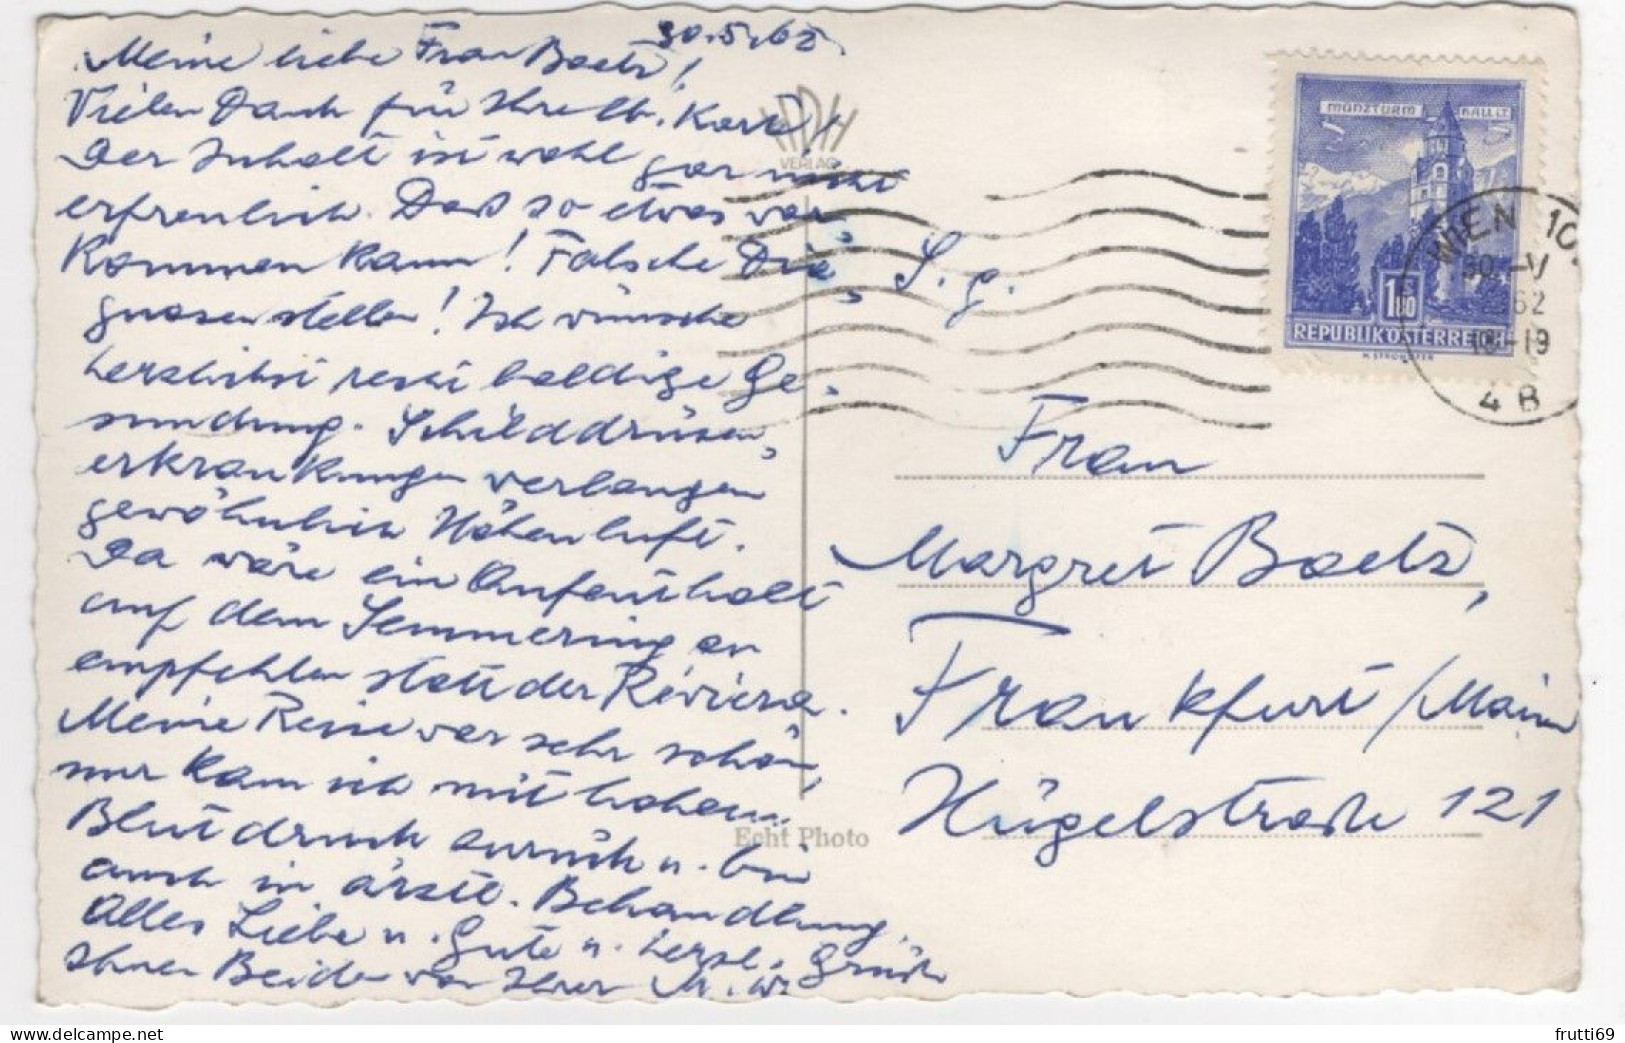 30.5.62.
Meine liebe Frau Baetz!
Vielen Dank für Ihre lb. Karte!
Der Inhalt ist wohl gar nicht
erfreulich. Daß so etwas vor-
kommen kann! Falsche Dia-
gnosen stellen! Ich wünsche
herzlichst recht baldige Ge-
sundung. Schilddrüsen-
erkrankungen verlangen
gewöhnlich Höhenluft.
Da wäre ein Aufenthalt
auf dem Semmering an
empfehlen statt der Riviera.
Meine Reise war sehr schön,
nur kam ich mit hohem
Blutdruck zurück u. bin
auch in ärztl. Behandlung.
Alles Liebe u. Gute u. herzl. Grüße
Ihnen Beiden von Ihrer M. W.
HDH
VERLAG
S. g.
Frau
Margret Baetz,
Frankfurt/Main
Hügelstraße 121
Echt Photo
MÜNZTURM HALL I.T.
1.80
REPUBLIK ÖSTERREICH
WIEN 10
30.-V
62
18-19
4B
frutti69